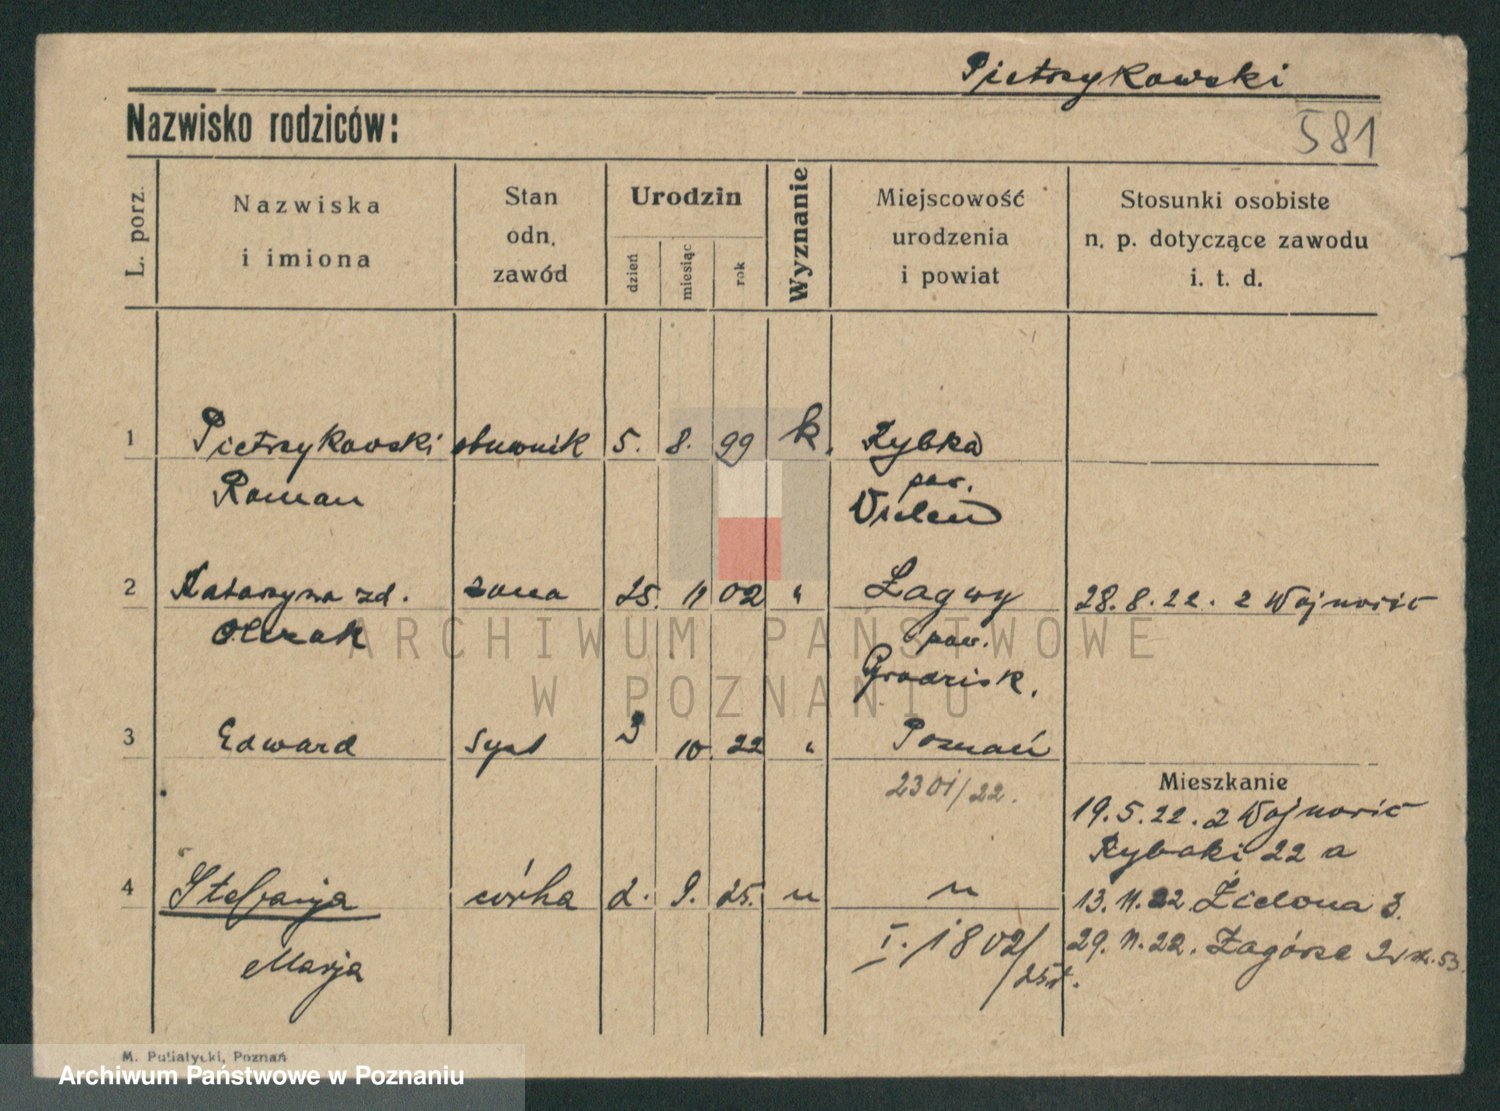 Pietrzykowski
Nazwisko rodziców:
581
L. porz.
Nazwiska
i imiona
Stan
odn.
zawód
Urodzin
dzień
miesiąc
rok
Wyznanie
Miejscowość
urodzenia
i powiat
Stosunki osobiste
n. p. dotyczące zawodu
i. t. d.
1 Pietrzykowski 5. 8. 99 k.
Roman
pow.
Wieleń
2 Katarzyna zd. żona 25. 11 02 " Łagwy 28.8.22. z Wojnowic
Olczak
pow.
Grodzisk.
3 Edward syn 3 10. 22 " Poznań
Mieszkanie
19.5.22. z Wojnowic
Rybaki 22 a
4 Stefanja córka 2. 9. 25. " "
13.11.22 Zielona 3.
Marja
I. 1802/
29.11.22. Zagórze
M. Putiatycki, Poznań
ARCHIWUM PAŃSTWOWE
W POZNANIU
Archiwum Państwowe w Poznaniu